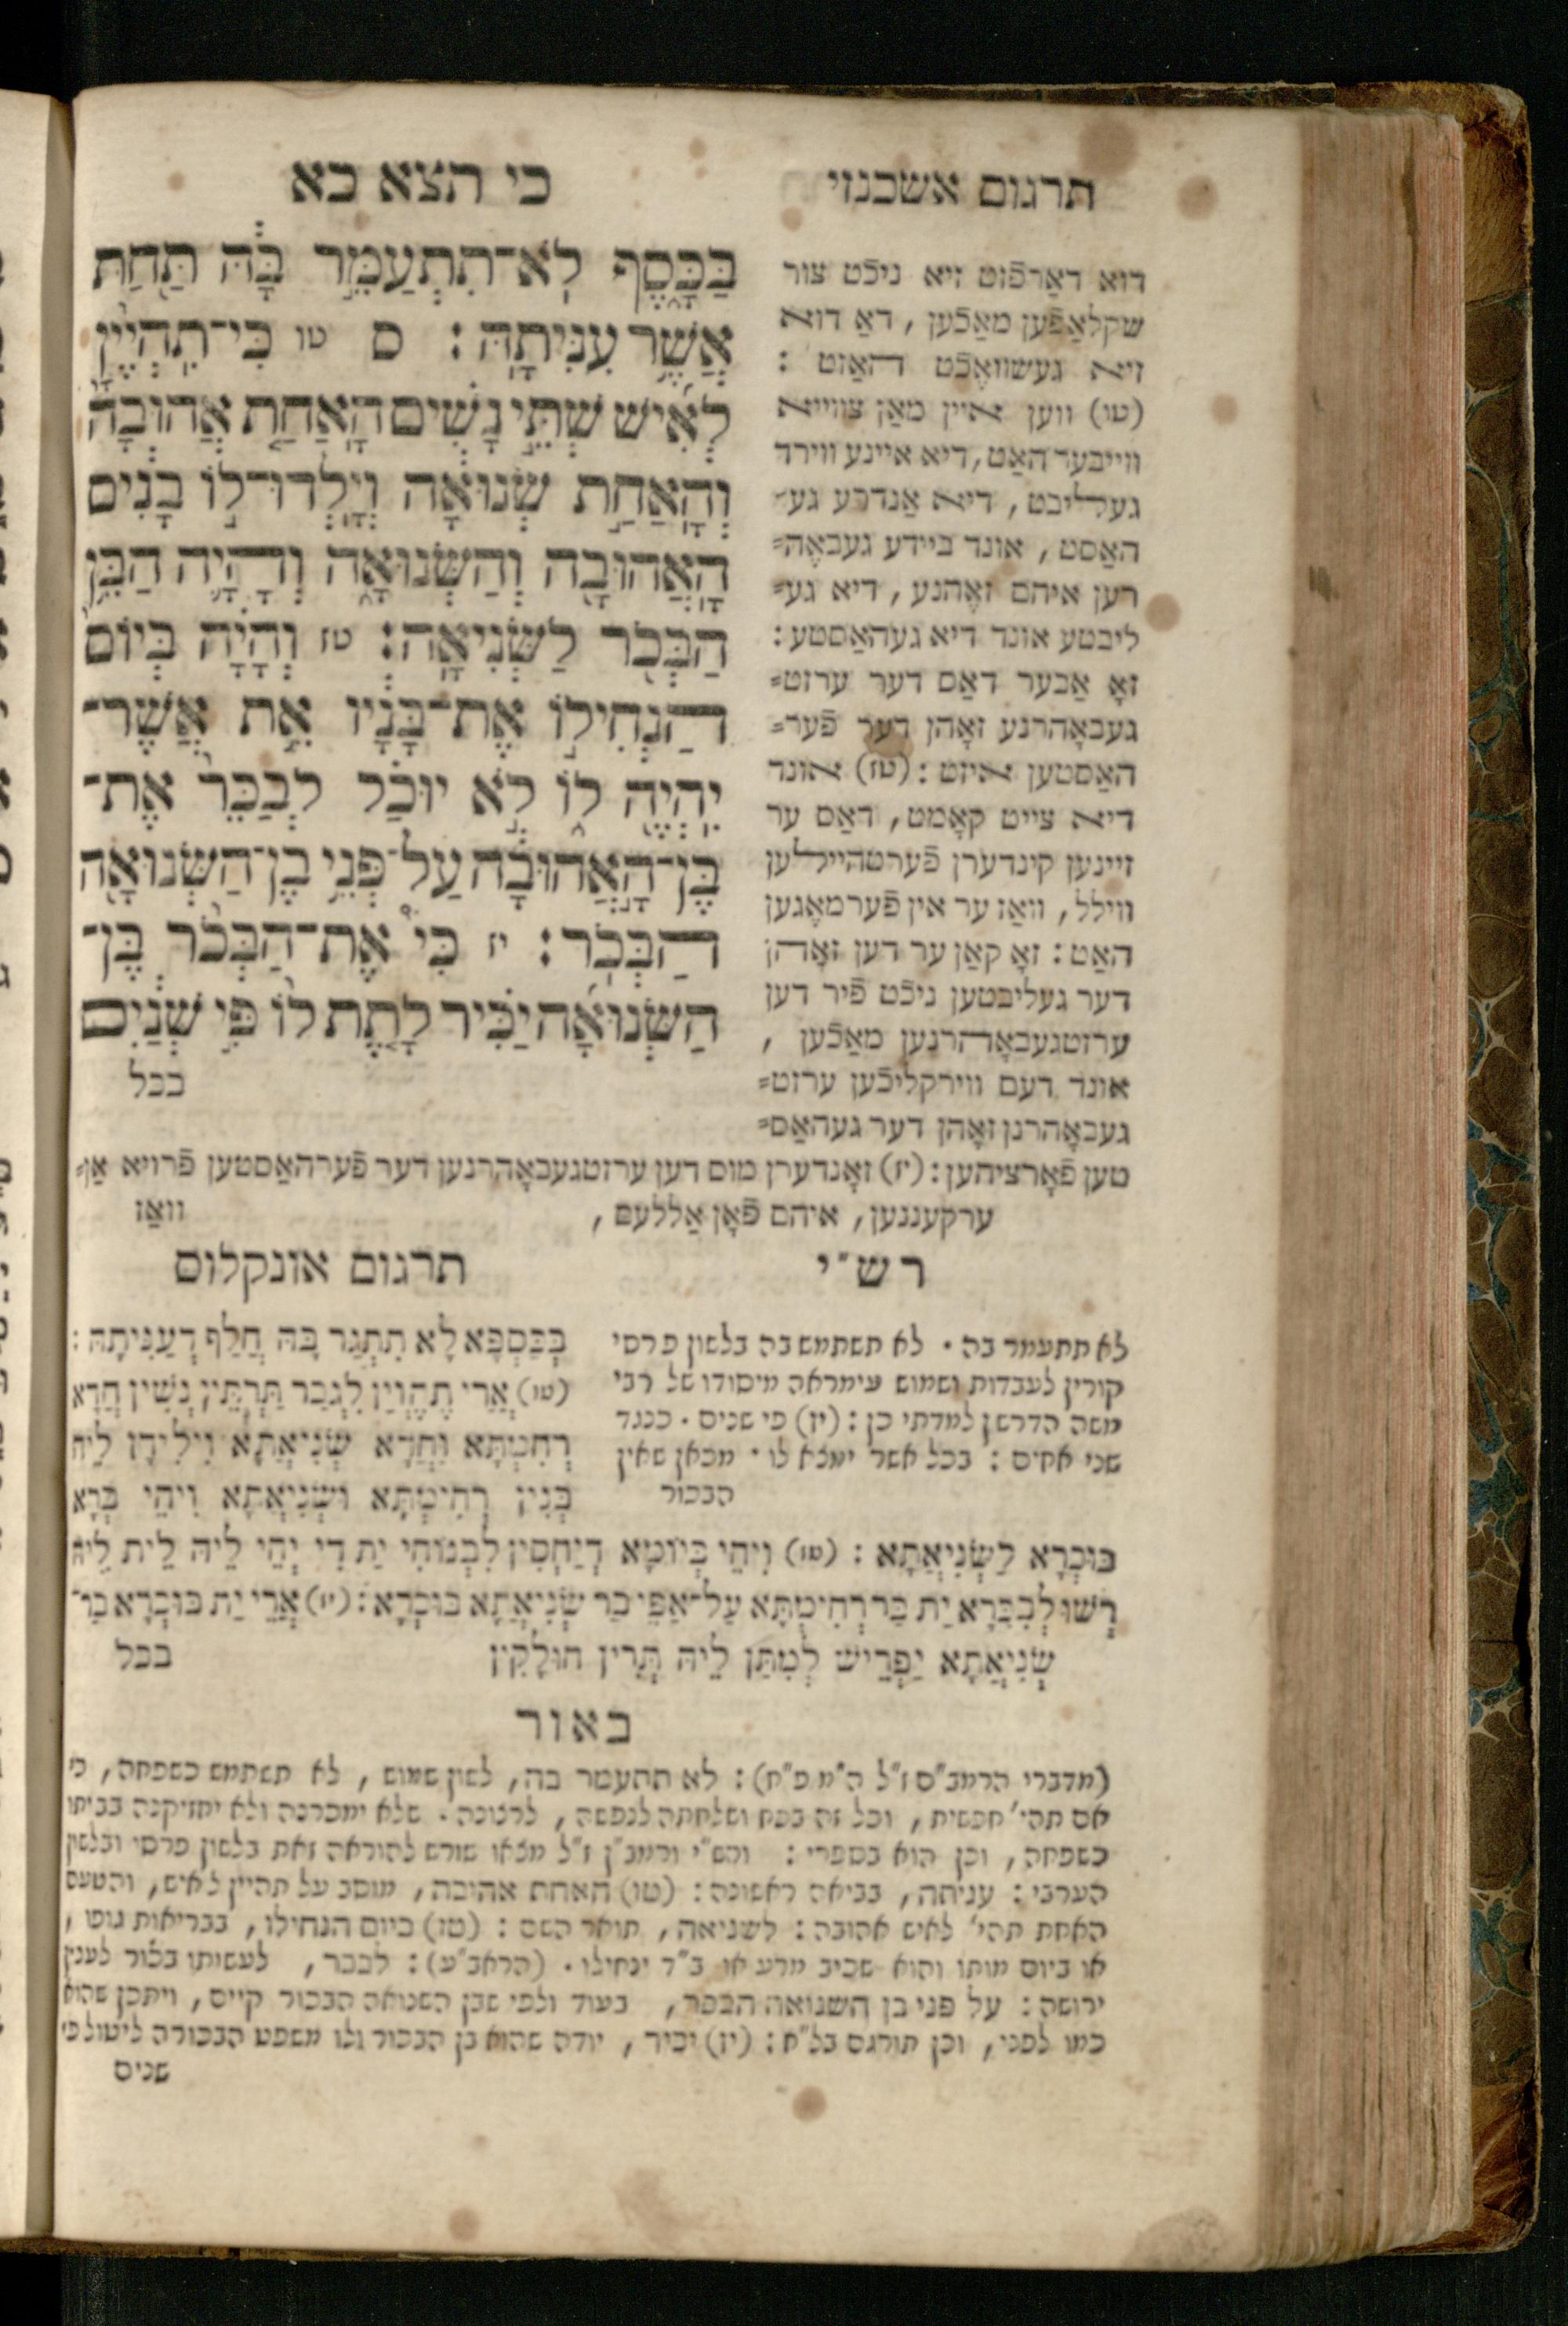 כי תצא כא
תרגום אשכנזי
בַּכָּ֑סֶף לֹא־תִתְעַמֵּ֣ר בָּ֔הּ תַּ֖חַת
אֲשֶׁ֥ר עִנִּיתָֽהּ׃ ס טו כִּֽי־תִהְיֶ֨יןָ
לְאִ֜ישׁ שְׁתֵּ֣י נָשִׁ֗ים הָאַחַ֤ת אֲהוּבָה֙
וְהָאַחַ֣ת שְׂנוּאָ֔ה וְיָֽלְדוּ־ל֣וֹ בָנִ֔ים
הָאֲהוּבָ֖ה וְהַשְּׂנוּאָ֑ה וְהָיָ֛ה הַבֵּ֥ן
הַבְּכֹ֖ר לַשְּׂנִיאָֽה׃ טז וְהָיָ֗ה בְּיוֹם֙
הַנְחִיל֣וֹ אֶת־בָּנָ֔יו אֵ֥ת אֲשֶׁר־
יִהְיֶ֖ה ל֑וֹ לֹ֣א יוּכַ֗ל לְבַכֵּר֙ אֶת־
בֶּן־הָ֣אֲהוּבָ֔ה עַל־פְּנֵ֥י בֶן־הַשְּׂנוּאָ֖ה
הַבְּכֹֽר׃ יז כִּי֩ אֶת־הַבְּכֹ֨ר בֶּן־
הַשְּׂנוּאָ֜ה יַכִּ֗יר לָ֤תֶת לוֹ֙ פִּ֣י שְׁנַ֔יִם
בכל
דוא דאַרפֿזט זיא ניכֿט צור
שקלאַפֿען מאַכֿען, דאַ דוא
זיא געשוואֶכֿט האַזט :
(טו) ווען איין מאַן צווייא
ווייבער האַט, דיא איינע ווירד
געליבט, דיא אַנדרע גע־
האַסט, אונד ביידע געבאֶה=
רען איהם זאֶהנע, דיא גע=
ליבטע אונד דיא געהאַסטע :
זאָ אַבער דאַס דער ערזט=
געבאָהרנע זאָהן דער פֿער=
האַסטען איזט : (טז) אונד
דיא צייט קאָמט, דאַס ער
זיינען קינדערן פֿערטהיילען
וויללּ, וואַז ער אין פֿערמאֶגען
האַט : זאָ קאַן ער דען זאָהן
דער געליבטען ניכֿט פֿיר דען
ערזטגעבאָהרנען מאַכֿען ,
אונד דעם ווירקליכֿען ערזט=
געבאָהרנן זאָהן דער געהאַס=
טען פֿאָרציהען : (יז) זאָנדערן מוס דען ערזטגעבאָהרנען דער פֿערהאַסטען פֿרויא אַן=
ערקעננען, איהם פֿאָן אַללעם , וואַז
רש״י
לא תתעמר בה . לא תשתמש בה בלשון פרסי
קורין לעבדות ושמוש עימראה מיסודו של רבי
משה הדרשן למדתי כן : (יז) פי שנים . כנגד
שני אחים : בכל אשר ימצא לו . מכאן שאין
הבכור
תרגום אונקלוס
בְּכַסְפָּא לָא תִתְגַר בָּהּ חֲלַף דְעַנִיתָהּ :
(טו) אֲרֵי תֶהֶוְיַן לִגְבַר תַּרְתֵּין נְשִׁין חֲדָא
רְחִימְתָּא וַחֲדָא שְׂנִיאֲתָא וִילִידָן לֵיהּ
בְּנִין רְחִימְתָּא וּשְׂנִיאֲתָא וִיהֵי בְּרָא
בּוּכְרָא לִשְׂנִיאֲתָא : (טז) וִיהֵי בְּיוֹמָא דְיַחְסִין לִבְנוֹהִי יַת דִי יְהֵי לֵיהּ לֵית לֵיהּ
רְשׁוּ לְבַכָּרָא יַת בַּר רְחִימְתָּא עַל־אַפֵּי בַר שְׂנִיאֲתָא בּוּכְרָא : (יז) אֲרֵי יַת בּוּכְרָא בַר־
שְׂנִיאֲתָא יַפְרֵישׁ לְמִתַּן לֵיהּ תְּרֵין חוּלָקִין בכל
באור
(מדברי הרמב״ם ז״ל ה״מ פ״ח) : לא תתעמר בה, לשון שמוש, לא תשתמש כשפחה, כי
אם תהי׳ חפשית, וכל זה בפת ושלחתה לנפשה, לרצונה . שלא ימכרנה ולא יחזיקנה בביתו
כשפחה, וכן הוא בספרי : ורש״י ורמב״ן ז״ל מצאו שורש להוראה זאת בלשון פרסי ובלשון
הערבי : עניתה, בביאה ראשונה : (טו) האחת אהובה, מוסב על תהיין לאיש, והטעם
האחת תהי׳ לאיש אהובה : לשניאה, תואר השם : (טז) ביום הנחילו, בבריאות גופו ,
או ביום מותו והוא שכיב מרע או ב״ד ינחילו . (הראב״ע) : לבכר, לעשותו בכור לענין
ירושה : על פני בן השנואה הבכר, בעוד ולפי שבן השנואה הבכור קיים, ויתכן שהוא
כמו לפני, וכן תורגם בל״א : (יז) יכיר, יודה שהוא בן הבכור ולו משפט הבכורה ליטול פי
שנים